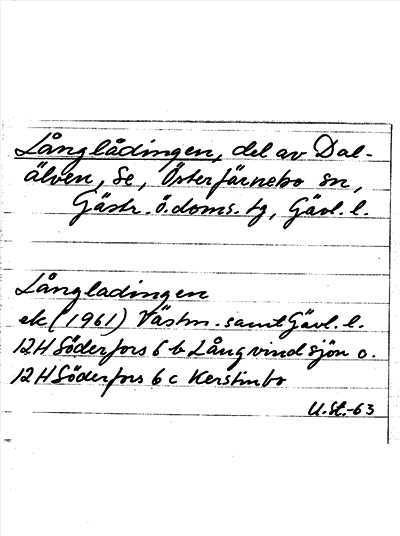 Långlådingen, del av Dal-
älven, se, Österfärnebo sn,
Gästr. ö. doms. tg, Gävl. l.
Långladingen
ek (1961) Västm. samt Gävl. l.
12H Söderfors 6 b Långvindsjön o.
12H Söderfors 6 c Kerstinbo
U.St.-63